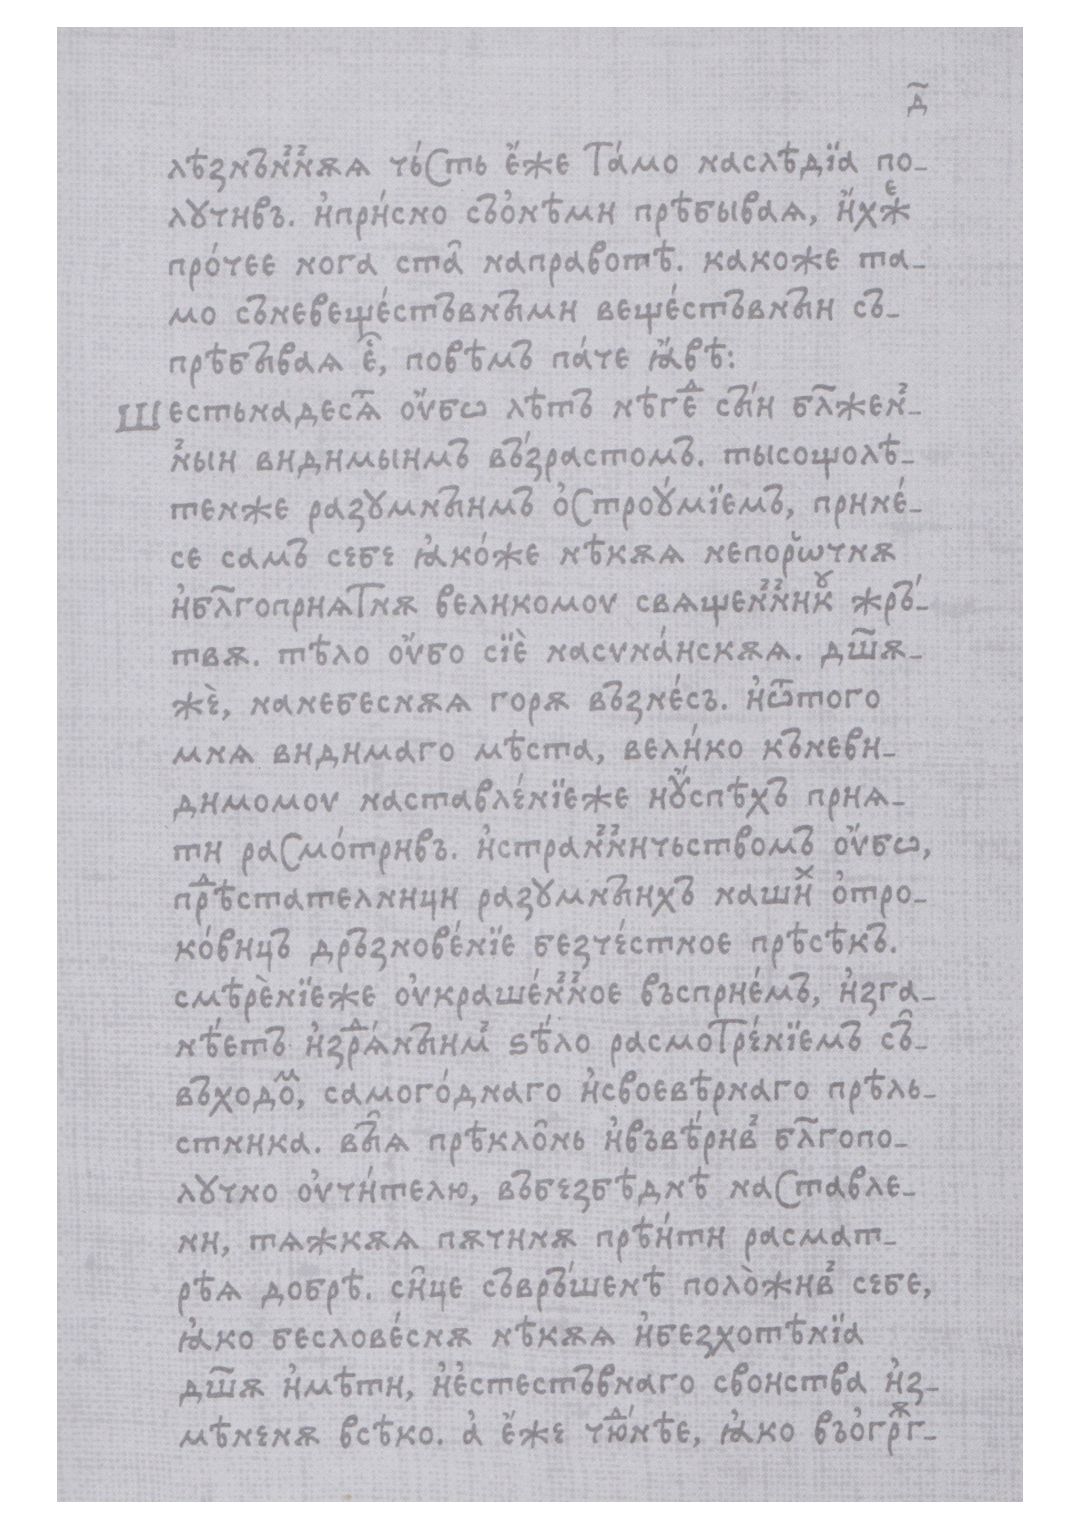 д҃
лѣзнън̾н̾ѫѧ чь́сть є҆́же та́мо наслѣдїа по_
лꙋчивъ. и҆при́сно съо҆нѣми прѣбываѧ, и҆́хжⷷ
про́чее нога ста̑ направотѣ. какоже та_
мо съневеще́стъвнꙑми веще́ствънꙑи съ_
прѣбꙑваѧ є҆̑, повѣмъ па́че ꙗ҆́вѣ:
Шестьнадесѧ̄ ѹ҆́бѡ лѣтъ нѣгдⷣе сꙑ́и бл҃жен̾_
н̾ыи видимыимъ въ́зрастомъ. тысощолѣ_
тенже разꙋмнꙑимъ о҆строꙋ́мїемъ, прине́_
се самъ себе ꙗ҆ко́же нѣкѫѧ непорѡ́чнѫ
и҆бл҃гопріѧтнѫ великомоѵ свѧщен̾н̾икꙋ жръ́_
твѫ. тѣло ѹ҆́бо сїѐ насѵна́искѫѧ. дш҃ѫ_
жѐ, нанебеснѫѧ горѫ възне́съ. и҆ѿтого
мнѧ видимаго мѣста, вели́ко къневи_
димомоѵ наставле́нїеже иꙋ҆́спѣхъ приѧ_
ти расмо́тривъ. и҆стран̾н̾ичьствомъ ѹ҆́бѡ,
прⷣѣстателници разꙋмнꙑихъ нашиⷯ о҆тро_
ко́вицъ дръзнове́нїе безче́стное прѣсѣкъ.
смѣрѐнїеже ѹ҆краше́н̾н̾ое въсприе́мъ, и҆зга_
нѣ́етъ и҆зрⷣѧ́нꙑим̾ ѕѣ́ло расмотре́нїемъ съ̑_
въходоⷨ, самого́днаго и҆своевѣрнаго прѣль_
стника. вꙑ̑ѧ прѣкло̑нь и҆въвѣ́рив̾ бл҃гопо_
лꙋчно ѹ҆чи́телю, въбезбѣднѣ наставле_
ни, тѧжкѫѧ пѫчинѫ прѣи́ти расмат_
рѣѧ добрѣ. си̑це съвръ́шенѣ поло̀жив̾ себе,
ꙗ҆ко бесловеснѫ нѣкѫѧ и҆безхотѣнїа
дш҃ѫ и҆мѣти, и҆є҆стестъвнаго своиства и҆з_
мѣненѫ всѣко. а҆ є҆́же чюⷣнѣе, ꙗ҆ко въо҆грѫг_